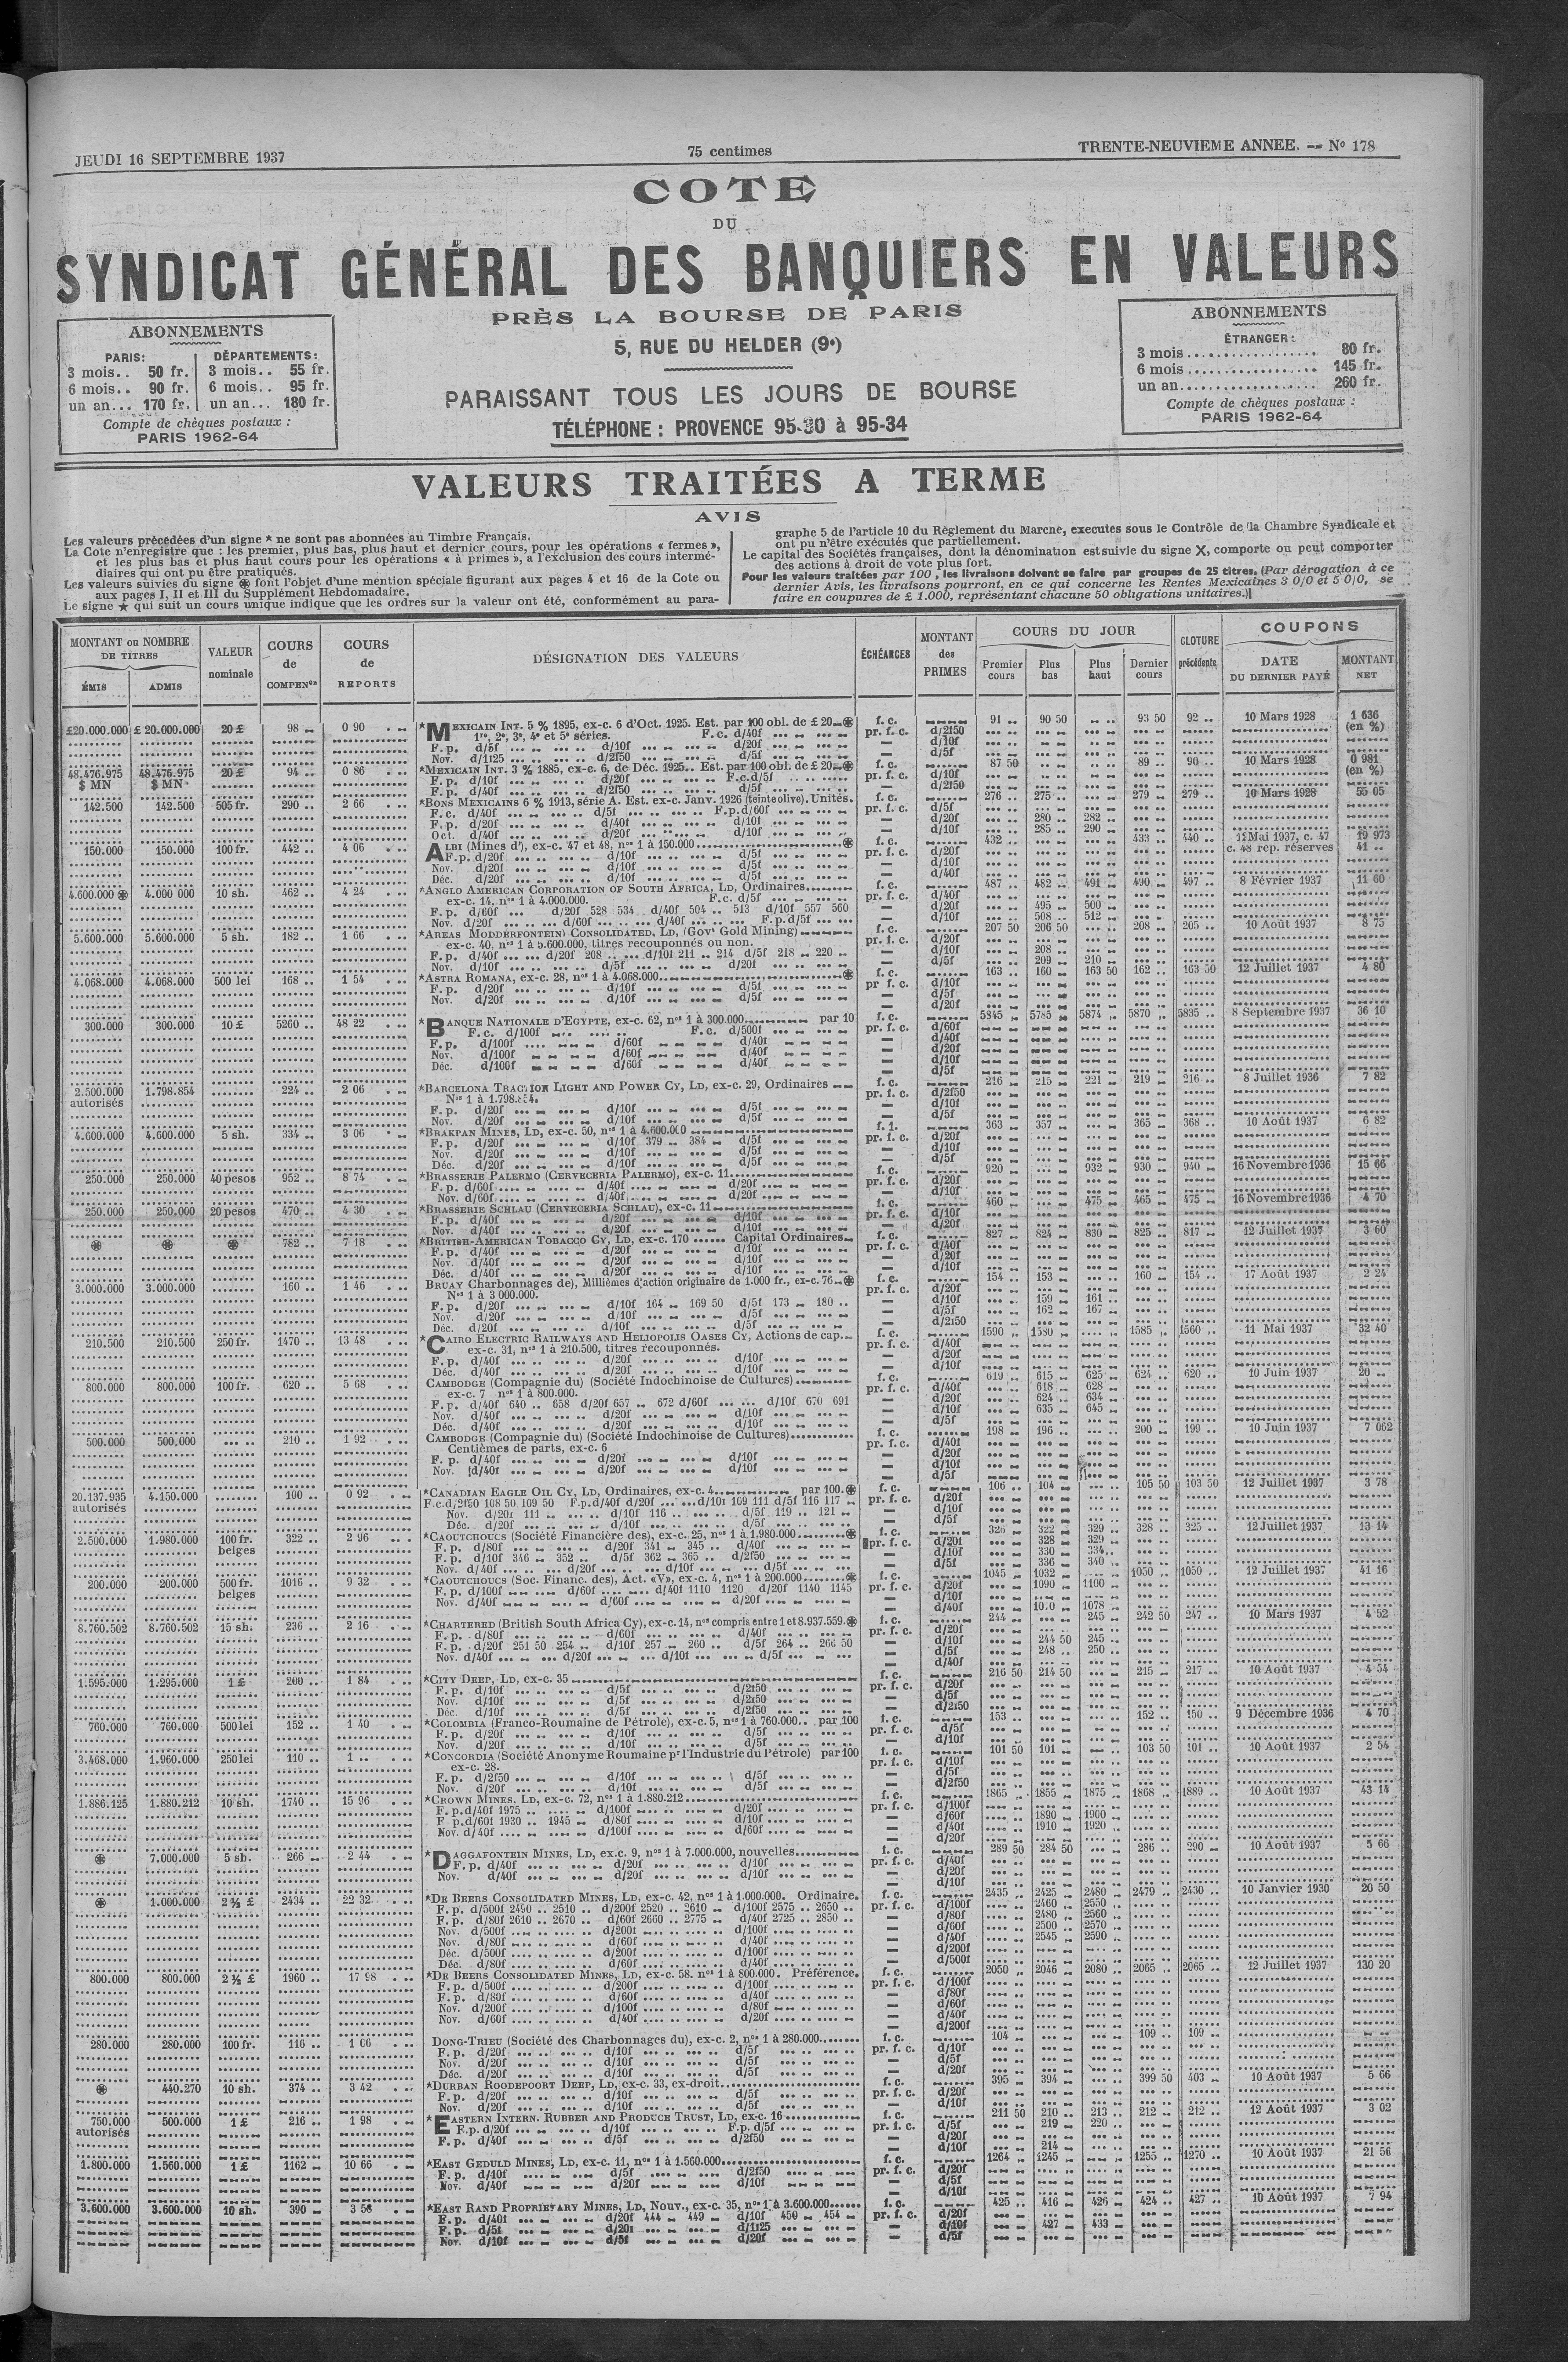 JEUDI 16 SEPTEMBRE 1937
75 centimes
TRENTE-NEUVIEME ANNEE. — Nº 178
COTE
DU
SYNDICAT GÉNÉRAL DES BANQUIERS EN VALEURS
PRÈS LA BOURSE DE PARIS
5, RUE DU HELDER (9ᵉ)
PARAISSANT TOUS LES JOURS DE BOURSE
TÉLÉPHONE : PROVENCE 95-30 à 95-34
ABONNEMENTS
PARIS: DÉPARTEMENTS:
3 mois.. 50 fr. 3 mois.. 55 fr.
6 mois.. 90 fr. 6 mois.. 95 fr.
un an... 170 fr. un an... 180 fr.
Compte de chèques postaux :
PARIS 1962-64
ABONNEMENTS
ÉTRANGER:
3 mois.................. 80 fr.
6 mois.................. 145 fr.
un an.................. 260 fr.
Compte de chèques postaux :
PARIS 1962-64
VALEURS TRAITÉES A TERME
AVIS
Les valeurs précédées d'un signe * ne sont pas abonnées au Timbre Français.
La Cote n'enregistre que : les premier, plus bas, plus haut et dernier cours, pour les opérations « fermes »,
et les plus bas et plus haut cours pour les opérations « à primes », a l'exclusion des cours intermé-
diaires qui ont pu être pratiqués.
Les valeurs suivies du signe ⊛ font l'objet d'une mention spéciale figurant aux pages 4 et 16 de la Cote ou
aux pages I, II et III du Supplément Hebdomadaire.
Le signe ★ qui suit un cours unique indique que les ordres sur la valeur ont été, conformément au para-
graphe 5 de l'article 10 du Règlement du Marcne, executes sous le Contrôle de la Chambre Syndicale et
ont pu n'être exécutés que partiellement.
Le capital des Sociétés françaises, dont la dénomination est suivie du signe X, comporte ou peut comporter
des actions à droit de vote plus fort.
Pour les valeurs traitées par 100, les livraisons doivent se faire par groupes de 25 titres. (Par dérogation à ce
dernier Avis, les livraisons pourront, en ce qui concerne les Rentes Mexicaines 3 0/0 et 5 0/0, se
faire en coupures de £ 1.000, représentant chacune 50 obligations unitaires.)
MONTANT ou NOMBRE DE TITRES
ÉMIS ADMIS
VALEUR nominale
COURS de COMPENᵒⁿ
COURS de REPORTS
DÉSIGNATION DES VALEURS
ÉCHÉANCES
MONTANT des PRIMES
COURS DU JOUR
Premier cours Plus bas Plus haut Dernier cours
CLOTURE précédente
COUPONS
DATE DU DERNIER PAYÉ
MONTANT NET
£20.000.000 £ 20.000.000 20 £ 98 0 90 *MEXICAIN INT. 5 % 1895, ex-c. 6 d'Oct. 1925. Est. par 100 obl. de £ 20 ⊛ f. c. 91 90 50 93 50 92 10 Mars 1928 1 636
1ʳᵉ, 2ᵉ, 3ᵉ, 4ᵉ et 5ᵉ séries. F.c. d/40f pr. f. c. d/2f50 (en %)
F. p. d/5f d/10f d/20f — d/10f
Nov. d/1f25 d/2f50 d/5f — d/5f
48.476.975 48.476.975 20 £ 94 0 86 *MEXICAIN INT. 3 % 1885, ex-c. 6, de Déc. 1925.. Est. par 100 obl. de £ 20 ⊛ f. c. 87 50 89 90 10 Mars 1928 0 981
$ MN $ MN F. p. d/10f d/20f F.c.d/5f pr. f. c. d/10f (en %)
F. p. d/40f d/2f50 d/5f — d/2f50
142.500 142.500 505 fr. 290 2 66 *BONS MEXICAINS 6 % 1913, série A. Est. ex-c. Janv. 1926 (teinte olive). Unités. f. c. 276 275 279 279 10 Mars 1928 55 05
F. c. d/40f d/5f F.p.d/60f pr. f. c. d/5f
F. p. d/20f d/40f d/10f — d/20f 280 282
Oct. d/40f d/20f d/10f — d/10f 285 290
150.000 150.000 100 fr. 442 4 06 ALBI (Mines d'), ex-c. 47 et 48, nᵒˢ 1 à 150.000 ⊛ f. c. 432 433 440 12 Mai 1937, c. 47 19 973
F. p. d/20f d/10f d/5f pr. f. c. d/20f c. 48 rep. réserves 41
Nov. d/20f d/10f d/5f — d/10f
Déc. d/20f d/10f d/5f — d/40f
4.600.000 ⊛ 4.000 000 10 sh. 462 4 24 *ANGLO AMERICAN CORPORATION OF SOUTH AFRICA, LD, Ordinaires f. c. 487 482 491 490 497 8 Février 1937 11 60
ex-c. 14, nᵒˢ 1 à 4.000.000. F.c. d/5f pr. f. c. d/40f
F. p. d/60f d/20f 528 534 d/40f 504 513 d/10f 557 560 — d/20f 495 500
Nov. d/20f d/60f d/40f F.p.d/5f — d/10f 508 512
5.600.000 5.600.000 5 sh. 182 1 66 *AREAS MODDERFONTEIN) CONSOLIDATED, LD, (Govᵗ Gold Mining) f. c. 207 50 206 50 208 205 10 Août 1937 8 75
ex-c. 40, nᵒˢ 1 à 5.600.000, titres recouponnés ou non. pr. f. c. d/20f
F. p. d/40f d/20f 208 d/10f 211 214 d/5f 218 220 — d/10f 208
Nov. d/10f d/5f d/20f — d/5f 209 210
4.068.000 4.068.000 500 lei 168 1 54 *ASTRA ROMANA, ex-c. 28, nᵒˢ 1 à 4.068.000 ⊛ f. c. 163 160 163 50 162 163 50 12 Juillet 1937 4 80
F. p. d/20f d/10f d/5f pr f. c. d/10f
Nov. d/20f d/10f d/5f — d/5f
— d/20f
300.000 300.000 10 £ 5260 48 22 *BANQUE NATIONALE D'EGYPTE, ex-c. 62, nᵒˢ 1 à 300.000 par 10 f. c. 5845 5785 5874 5870 5835 8 Septembre 1937 36 10
F. c. d/100f F.c. d/500f pr. f. c. d/60f
F. p. d/100f d/60f d/40f — d/40f
Nov. d/100f d/60f d/40f — d/20f
Déc. d/100f d/60f d/40f — d/10f
— d/5f
2.500.000 1.798.854 224 2 06 *BARCELONA TRACTION LIGHT AND POWER CY, LD, ex-c. 29, Ordinaires f. c. 216 215 221 219 216 8 Juillet 1936 7 82
autorisés Nᵒˢ 1 à 1.798.854. pr. f. c. d/2f50
F. p. d/20f d/10f d/5f — d/10f
Nov. d/20f d/10f d/5f — d/5f
4.600.000 4.600.000 5 sh. 334 3 06 *BRAKPAN MINES, LD, ex-c. 50, nᵒˢ 1 à 4.600.000 f. 1. 363 357 365 368 10 Août 1937 6 82
F. p. d/20f d/10f 379 384 d/5f pr. f. c. d/20f
Nov. d/20f d/10f d/5f — d/10f
Déc. d/20f d/10f d/5f — d/5f
250.000 250.000 40 pesos 952 8 74 *BRASSERIE PALERMO (CERVECERIA PALERMO), ex-c. 11 f. c. 920 932 930 940 16 Novembre 1936 15 66
F. p. d/60f d/40f d/20f pr. f. c. d/20f
Nov. d/60f d/40f d/20f — d/10f
250.000 250.000 20 pesos 470 4 30 *BRASSERIE SCHLAU (CERVECERIA SCHLAU), ex-c. 11 f. c. 460 475 465 475 16 Novembre 1936 4 70
F. p. d/40f d/20f d/10f pr. f. c. d/10f
Nov. d/40f d/20f d/10f — d/20f
⊛ ⊛ ⊛ 782 7 18 *BRITISH-AMERICAN TOBACCO CY, LD, ex-c. 170 Capital Ordinaires f. c. 827 824 830 825 817 12 Juillet 1937 3 60
F. p. d/40f d/20f d/10f pr. f. c. d/40f
Nov. d/40f d/20f d/10f — d/20f
Déc. d/40f d/20f d/10f — d/10f
3.000.000 3.000.000 160 1 46 BRUAY Charbonnages de), Millièmes d'action originaire de 1.000 fr., ex-c. 76 ⊛ f. c. 154 153 160 154 17 Août 1937 2 24
Nᵒˢ 1 à 3 000.000. pr. f. c. d/20f
F. p. d/20f d/10f 164 169 50 d/5f 173 180 — d/10f 159 161
Nov. d/20f d/10f d/5f — d/5f 162 167
Déc. d/20f d/10f d/5f — d/2f50
210.500 210.500 250 fr. 1470 13 48 *CAIRO ELECTRIC RAILWAYS AND HELIOPOLIS OASES CY, Actions de cap. f. c. 1590 1580 1585 1560 11 Mai 1937 32 40
ex-c. 31, nᵒˢ 1 à 210.500, titres recouponnés. pr. f. c. d/40f
F. p. d/40f d/20f d/10f — d/20f
Déc. d/40f d/20f d/10f — d/10f
800.000 800.000 100 fr. 620 5 68 CAMBODGE (Compagnie du) (Société Indochinoise de Cultures) f. c. 619 615 625 624 620 10 Juin 1937 20
ex-c. 7 nᵒˢ 1 à 800.000. pr. f. c. d/40f 618 628
F. p. d/40f 640 658 d/20f 657 672 d/60f d/10f 670 691 — d/20f 624 634
Nov. d/40f d/20f d/10f — d/10f 635 645
Déc. d/40f d/20f d/10f — d/5f
500.000 500.000 210 1 92 CAMBODGE (Compagnie du) (Société Indochinoise de Cultures) f. c. 198 196 200 199 10 Juin 1937 7 062
Centièmes de parts, ex-c. 6 pr. f. c. d/40f
F. p. d/40f d/20f d/10f — d/20f
Nov. d/40f d/20f d/10f — d/10f
— d/5f
20.137.935 4.150.000 100 0 92 *CANADIAN EAGLE OIL CY, LD, Ordinaires, ex-c. 4 par 100. ⊛ f. c. 106 104 105 50 103 50 12 Juillet 1937 3 78
autorisés F.c.d/2f50 108 50 109 50 F.p.d/40f d/20f d/10f 109 111 d/5f 116 117 pr. f. c. d/20f
Nov. d/20f 111 d/10f 116 d/5f 119 121 — d/10f
Déc. d/20f d/10f d/5f — d/5f
2.500.000 1.980.000 100 fr. 322 2 96 *CAOUTCHOUCS (Société Financière des), ex-c. 25, nᵒˢ 1 à 1.980.000 ⊛ f. c. 326 322 329 328 325 12 Juillet 1937 13 14
belges F. p. d/80f d/20f 341 345 d/40f pr. f. c. d/20f 328 329
F. p. d/10f 346 352 d/5f 362 365 d/2f50 — d/10f 330 334
Nov. d/40f d/20f d/10f d/5f — d/5f 336 340
200.000 200.000 500 fr. 1016 9 32 *CAOUTCHOUCS (Soc. Financ. des), Act. «V», ex-c. 4, nᵒˢ 1 à 200.000 ⊛ f. c. 1045 1032 1050 1050 12 Juillet 1937 41 16
belges F. p. d/100f d/60f d/40f 1110 1120 d/20f 1140 1145 pr. f. c. d/20f 1090 1100
Nov. d/40f d/60f d/20f — d/10f
— d/40f 1078
8.760.502 8.760.502 15 sh. 236 2 16 *CHARTERED (British South Africa Cy), ex-c. 14, nᵒˢ compris entre 1 et 8.937.559. ⊛ f. c. 244 245 242 50 247 10 Mars 1937 4 52
F. p. d/80f d/60f d/40f pr. f. c. d/20f
F. p. d/20f 251 50 254 d/10f 257 260 d/5f 264 266 50 — d/10f 244 50 245
Nov. d/40f d/20f d/10f d/5f — d/5f 248 250
— d/40f
1.595.000 1.295.000 1 £ 200 1 84 *CITY DEEP, LD, ex-c. 35 f. c. 216 50 214 50 215 217 10 Août 1937 4 54
F. p. d/10f d/5f d/2f50 pr. f. c. d/20f
Nov. d/10f d/5f d/2f50 — d/5f
Déc. d/10f d/5f d/2f50 — d/2f50
760.000 760.000 500 lei 152 1 40 *COLOMBIA (Franco-Roumaine de Pétrole), ex-c. 5, nᵒˢ 1 à 760.000.. par 100 f. c. 153 152 150 9 Décembre 1936 4 70
F. p. d/20f d/10f d/5f pr. f. c. d/5f
Nov. d/20f d/10f d/5f — d/10f
3.468.000 1.960.000 250 lei 110 1 *CONCORDIA (Société Anonyme Roumaine pʳ l'Industrie du Pétrole) par 100 f. c. 101 50 101 103 50 101 10 Août 1937 2 54
ex-c. 28. pr. f. c. d/10f
F. p. d/2f50 d/10f d/5f — d/5f
Nov. d/20f d/10f d/5f — d/2f50
1.886.125 1.880.212 10 sh. 1740 15 96 *CROWN MINES, LD, ex-c. 72, nᵒˢ 1 à 1.880.212 f. c. 1865 1855 1875 1868 1889 10 Août 1937 43 14
F. p. d/40f 1975 d/100f d/20f pr. f. c. d/100f
F p. d/60f 1930 1945 d/80f d/10f — d/60f 1890 1900
Nov. d/40f d/100f d/60f — d/40f 1910 1920
— d/20f
⊛ 7.000.000 5 sh. 266 2 44 *DAGGAFONTEIN MINES, LD, ex.c. 9, nᵒˢ 1 à 7.000.000, nouvelles f. c. 289 50 284 50 286 290 10 Août 1937 5 66
F. p. d/40f d/20f d/10f pr. f. c. d/40f
Nov. d/40f d/20f d/10f — d/20f
— d/10f
⊛ 1.000.000 2 ½ £ 2434 22 32 *DE BEERS CONSOLIDATED MINES, LD, ex-c. 42, nᵒˢ 1 à 1.000.000. Ordinaire. f. c. 2435 2425 2480 2479 2430 10 Janvier 1930 20 50
F. p. d/500f 2450 2510 d/200f 2520 2610 d/100f 2575 2650 pr. f. c. d/100f 2460 2550
F. p. d/80f 2610 2670 d/60f 2660 2775 d/40f 2725 2850 — d/80f 2480 2560
Nov. d/500f d/200f d/100f — d/60f 2500 2570
Nov. d/80f d/60f d/40f — d/40f 2545 2590
Déc. d/500f d/200f d/100f — d/200f
Déc. d/80f d/60f d/40f — d/500f
800.000 800.000 2 ½ £ 1960 17 98 *DE BEERS CONSOLIDATED MINES, LD, ex-c. 58. nᵒˢ 1 à 800.000. Préférence. f. c. 2050 2046 2080 2065 2065 12 Juillet 1937 130 20
F. p. d/500f d/200f d/100f pr. f. c. d/100f
F. p. d/80f d/60f d/40f — d/80f
Nov. d/200f d/100f d/80f — d/60f
Nov. d/60f d/40f d/20f — d/40f
— d/200f
280.000 280.000 100 fr. 116 1 06 DONG-TRIEU (Société des Charbonnages du), ex-c. 2, nᵒˢ 1 à 280.000 f. c. 104 109 109
F. p. d/20f d/10f d/5f pr. f. c. d/10f
Nov. d/20f d/10f d/5f — d/5f
Déc. d/20f d/10f d/5f — d/20f
⊛ 440.270 10 sh. 374 3 42 *DURBAN ROODEPOORT DEEP, LD, ex-c. 33, ex-droit f. c. 395 394 399 50 403 10 Août 1937 5 66
F. p. d/20f d/10f d/5f pr. f. c. d/20f
Nov. d/20f d/10f d/5f — d/10f
750.000 500.000 1 £ 216 1 98 *EASTERN INTERN. RUBBER AND PRODUCE TRUST, LD, ex-c. 16 f. c. 211 50 210 213 212 212 12 Août 1937 3 02
autorisés F.p. d/20f d/10f F.p. d/5f pr. f. c. d/5f 219 220
F. p. d/40f d/5f d/2f50 — d/20f
— d/10f 214
1.800.000 1.560.000 1 £ 1162 10 66 *EAST GEDULD MINES, LD, ex-c. 11, nᵒˢ 1 à 1.560.000 f. c. 1264 1245 1255 1270 10 Août 1937 21 56
F. p. d/10f d/5f d/2f50 pr. f. c. d/20f
Nov. d/40f d/20f d/10f — d/5f
— d/10f
3.600.000 3.600.000 10 sh. 390 3 58 *EAST RAND PROPRIETARY MINES, LD, Nouv., ex-c. 35, nᵒˢ 1 à 3.600.000 f. c. 425 416 426 424 427 10 Août 1937 7 94
F. p. d/40f d/20f 444 449 d/10f 450 454 pr. f. c. d/20f
F. p. d/5f d/20f d/1f25 — d/10f 427 433
Nov. d/10f d/5f d/20f — d/5f